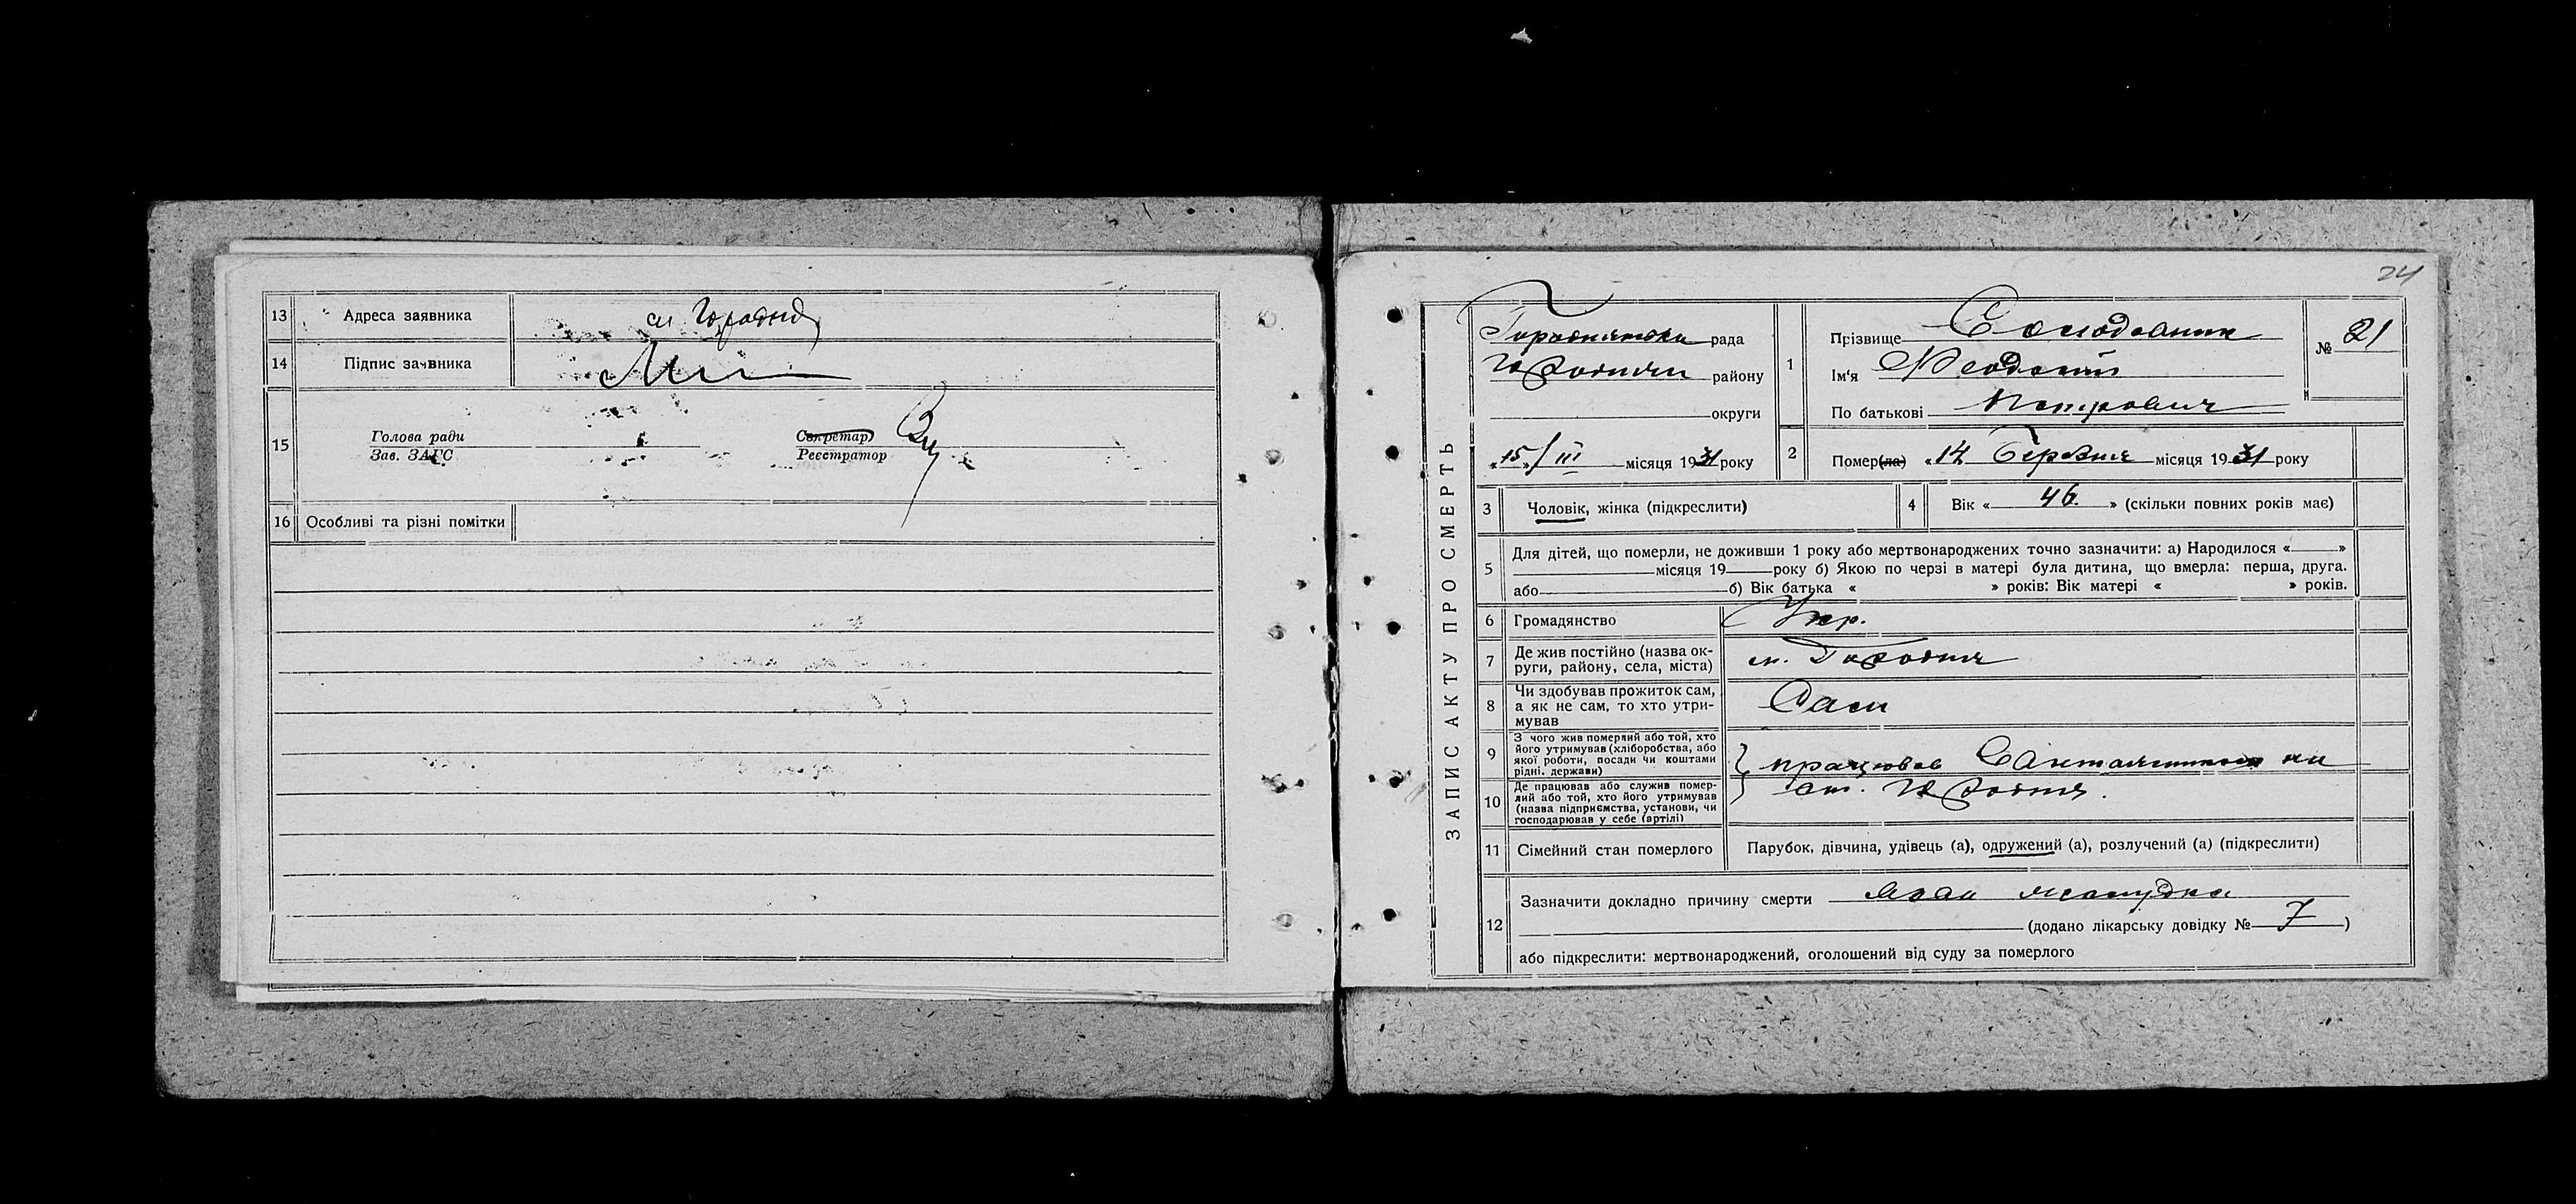 13 Адреса заявника см Городня
14 Підпис заявника
15 Голова ради Секретар
Зав. ЗАГС Реєстратор
16 Особливі та різні помітки
24
ЗАПИС АКТУ ПРО СМЕРТЬ
Городнянська рада
Городнян району
округи
«15»/III місяця 1931 року
1 Прізвище Солодовник
Ім'я Феодосій
По батькові Петрович
№ 21
2 Помер(ла) «14 Березня місяця 1931 року
3 Чоловік, жінка (підкреслити)
4 Вік «46» (скільки повних років має)
5 Для дітей, що померли, не доживши 1 року або мертвонароджених точно зазначити: а) Народилося « »
місяця 19 року б) Якою по черзі в матері була дитина, що вмерла: перша, друга.
або б) Вік батька « » років: Вік матері « » років.
6 Громадянство Укр.
7 Де жив постійно (назва ок-
руги, району, села, міста) см. Городня
8 Чи здобував прожиток сам,
а як не сам, то хто утри-
мував Сам
9 З чого жив померлий або той, хто
його утримував (хліборобства, або
якої роботи, посади чи коштами
рідні. держави)
працював на
10 Де працював або служив помер-
лий або той, хто його утримував
(назва підприємства, установи, чи
господарював у себе (артілі)
ст. Городня.
11 Сімейний стан померлого Парубок, дівчина, удівець (а), одружений (а), розлучений (а) (підкреслити)
12 Зазначити докладно причину смерти язва жолудка
(додано лікарську довідку № 7)
або підкреслити: мертвонароджений, оголошений від суду за померлого